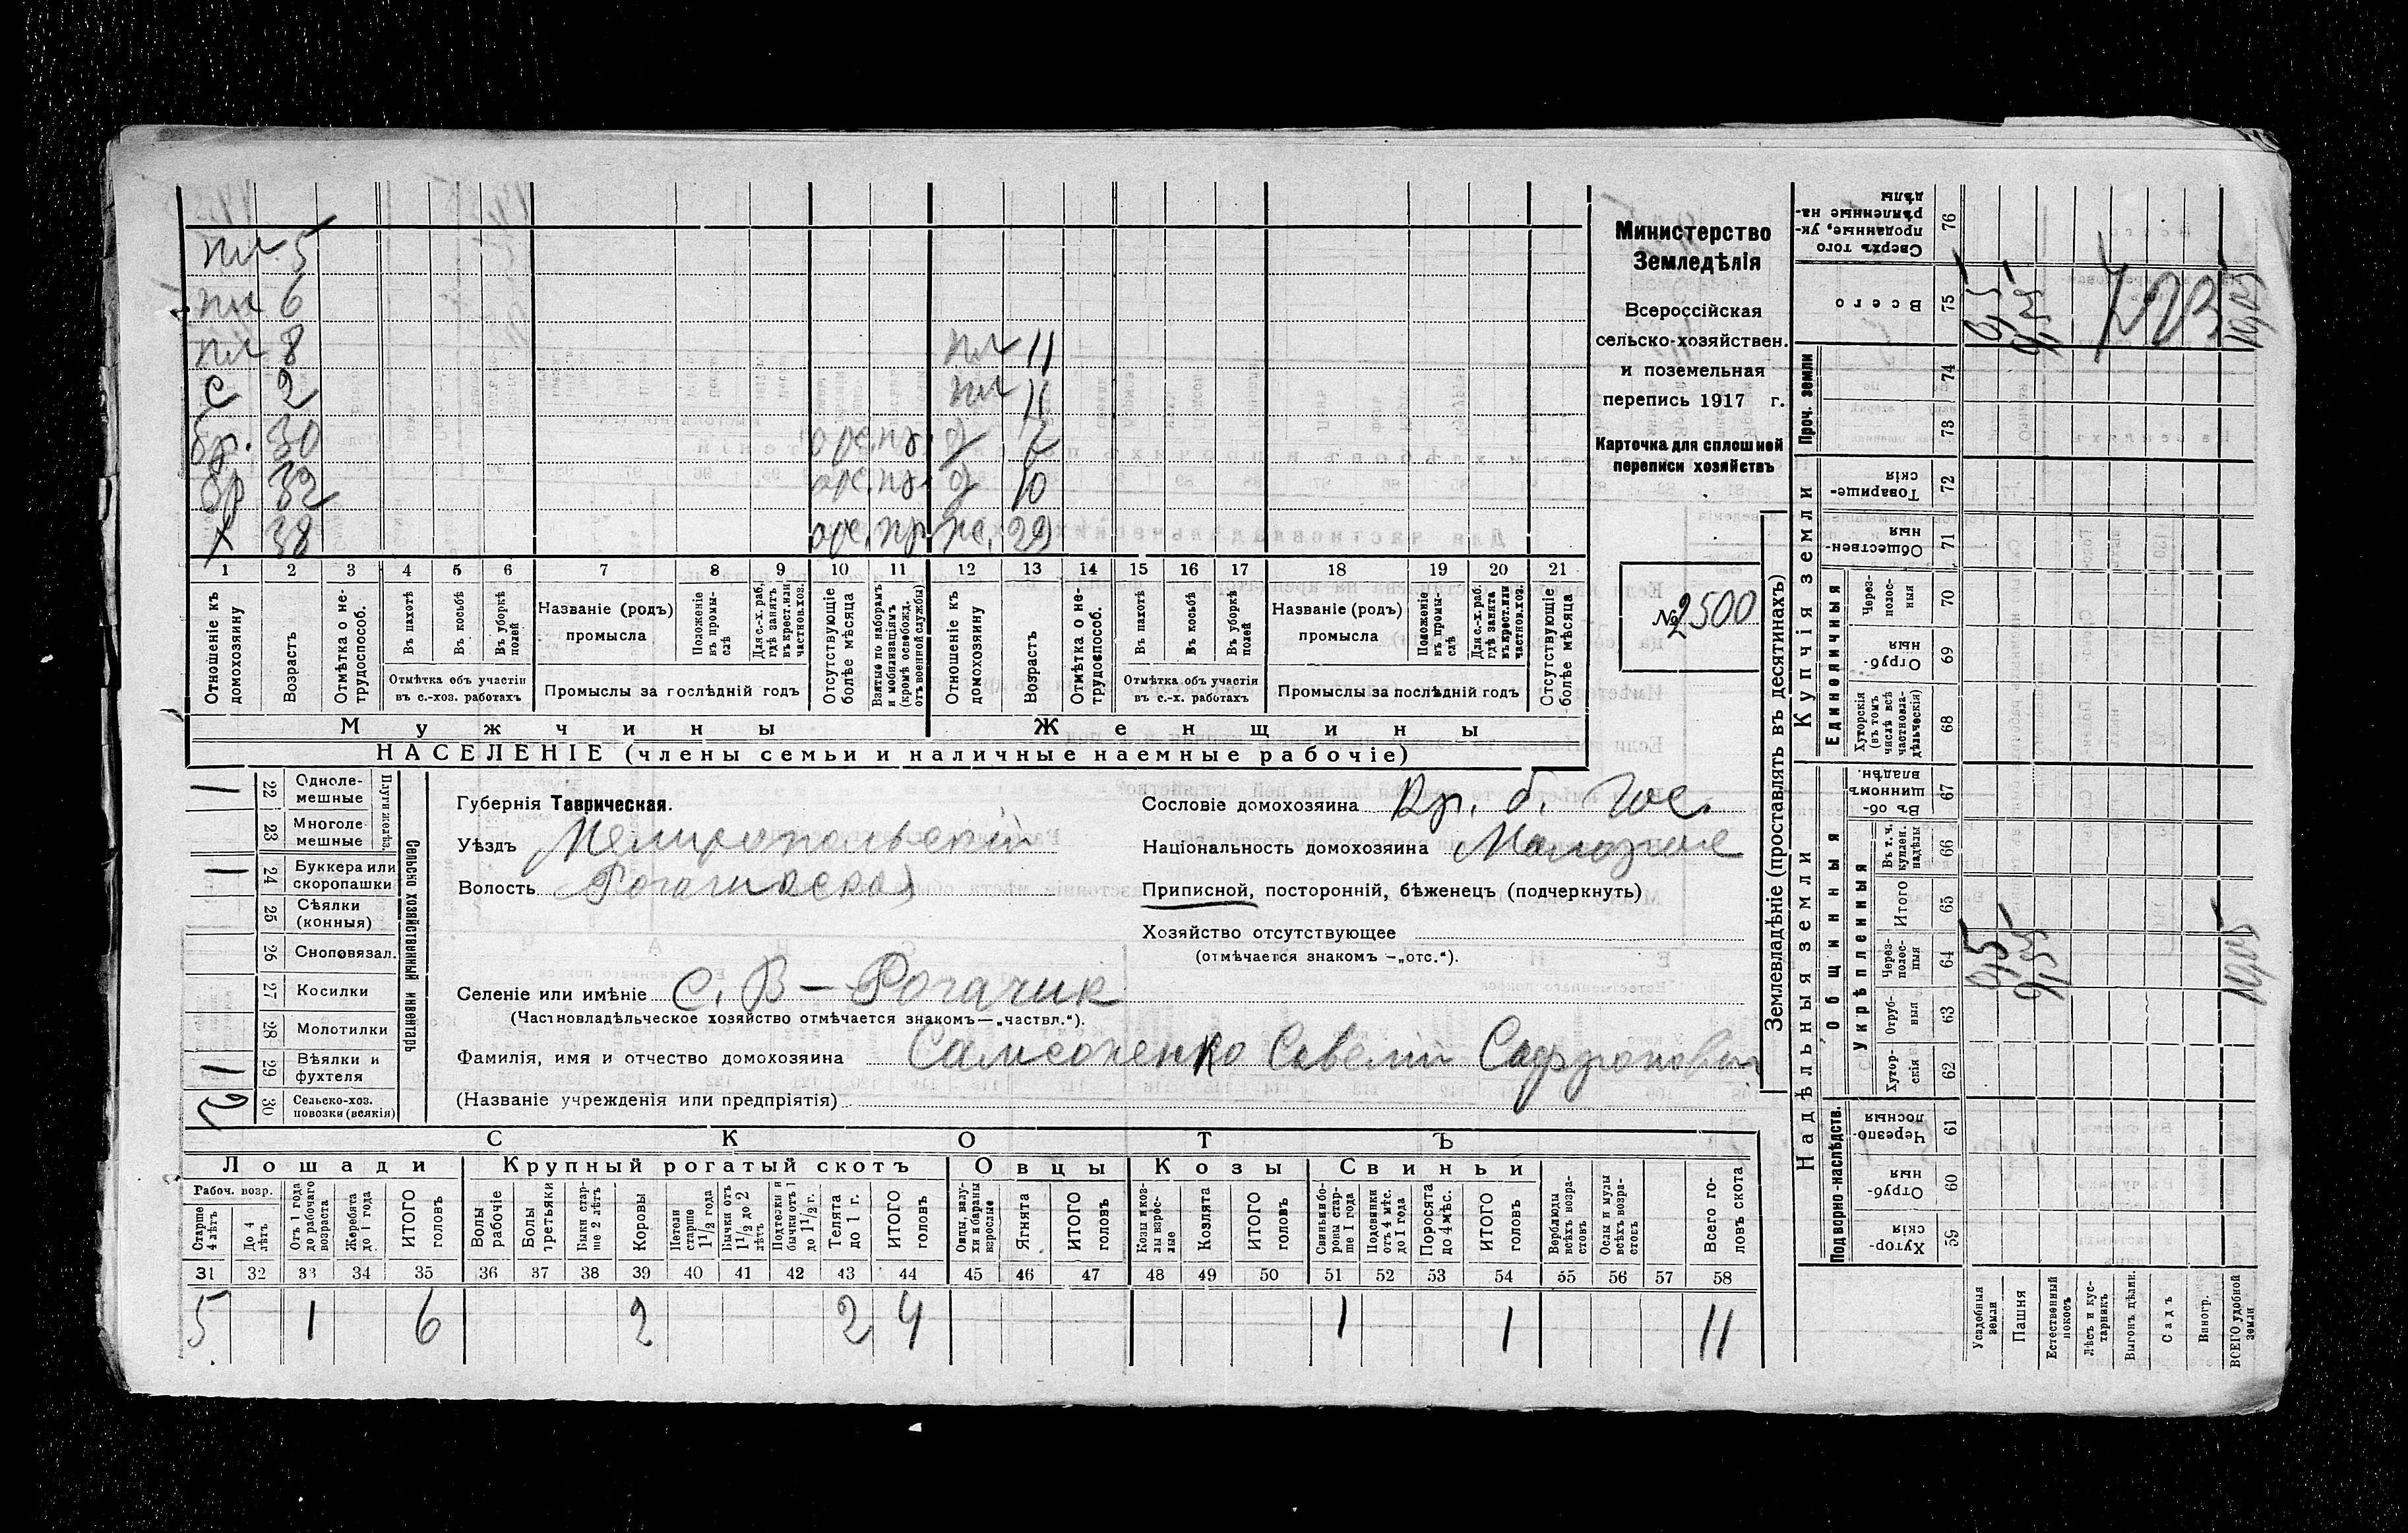 пл 5
пл 6
пл 8 пл 11
с 2 пл 11
бр. 30 д 7
бр 32 д 10
х 38 ж. 29
1 2 3 4 5 6 7 8 9 10 11 12 13 14 15 16 17 18 19 20 21
Отношеніе къ домохозяину
Возрастъ
Отмѣтка о не-
трудоспособ.
Въ пахотѣ
Въ косьбѣ
Въ уборкѣ полей
Отмѣтка объ участіи
въ с.-хоз. работахъ
Названіе (родъ)
промысла
Положеніе въ промы-
слѣ
Для с.-х. раб. гдѣ занятъ въ крест. или частнов. хоз.
Промыслы за послѣдній годъ
Отсутствующіе
болѣе мѣсяца
Взятые по наборамъ
и мобилизаціямъ
(кромѣ освобожд.
отъ военной службы)
Отношеніе къ
домохозяину
Возрастъ
Отмѣтка о не-
трудоспособ.
Въ пахотѣ
Въ косьбѣ
Въ уборкѣ полей
Отмѣтка объ участіи
въ с.-х. работахъ
Названіе (родъ)
промысла
Положеніе въ промы-
слѣ
Для с.-х. раб. гдѣ занята въ крест. или частнов. хоз.
Промыслы за послѣдній годъ
Отсутствующіе
болѣе мѣсяца
Мужчины Женщины
НАСЕЛЕНІЕ (члены семьи и наличные наемные рабочіе)
Министерство
Земледѣлія
Всероссійская
сельско-хозяйствен.
и поземельная
перепись 1917 г.
Карточка для сплошной
переписи хозяйствъ
№ 2500
Сельско хозяйственный инвентарь
Плуги желѣз.
1 22 Одноле-
мешные
23 Многоле
мешные
1 24 Буккера или
скоропашки
25 Сѣялки
(конныя)
26 Сноповязал.
27 Косилки
28 Молотилки
1 29 Вѣялки и
фухтеля
2 30 Сельско-хоз.
повозки (всякія)
Губернія Таврическая.
Уѣздъ Мелитопольскій
Волость Рогачикская
Сословіе домохозяина Кр. б. Гос.
Національность домохозяина
Приписной, посторонній, бѣженецъ (подчеркнуть)
Хозяйство отсутствующее
(отмѣчается знакомъ —„отс.“).
Селеніе или имѣніе с. В - Рогачик
(Частновладѣльческое хозяйство отмѣчается знакомъ—„частвл.“).
Фамилія, имя и отчество домохозяина Самсоненко Савелій Сафронович
(Названіе учрежденія или предпріятія)
СКОТЪ
Лошади Крупный рогатый скотъ Овцы Козы Свиньи
Рабоч. возр.
Старше 4 лѣтъ
До 4 лѣтъ
Отъ 1 года до рабочаго возраста
Жеребята до 1 года
ИТОГО головъ
Волы рабочіе
Волы третьяки
Быки стар-
ше 2 лѣтъ
Коровы
Нетели старше 1½ года
Бычки отъ 1½ до 2 лѣтъ
Подтелки и бычки отъ 1 до 1½ г.
Телята до 1 г.
ИТОГО головъ
Овцы, валу-
хи и бараны взрослые
Ягнята
ИТОГО головъ
Козы и коз-
лы взрос-
лые
Козлята
ИТОГО головъ
Свиньи и бо-
ровы стар-
ше 1 года
Подсвинки отъ 4 мѣс. до 1 года
Поросята до 4 мѣс.
ИТОГО головъ
Верблюды всѣхъ возра-
стовъ
Ослы и мулы всѣхъ возра-
стовъ
Всего го-
ловъ скота
31 32 33 34 35 36 37 38 39 40 41 42 43 44 45 46 47 48 49 50 51 52 53 54 55 56 57 58
5 1 6 2 2 4 1 1 11
Землевладѣніе (проставлять въ десятинахъ)
Надѣльныя земли Купчія земли Проч. земли
Подворно-наслѣдств.
Общинныя
Укрѣпленныя
Единоличныя
Сверхъ того
проданные, ук-
рѣпленные на-
дѣлы
76
Всего
75
74
73
Товарище-
скія
72
Обществен-
ныя
71
Через-
полос-
ныя
70
Отруб-
ныя
69
Хуторскія
(въ томъ
числѣ всѣ
частновла-
дѣльческія)
68
Въ об-
щинномъ
владѣн.
67
Въ т. ч.
куплен.
надѣлы
66
Итого
65
Через-
полос-
ныя
64
Отруб-
ныя
63
Хутор-
скія
62
Черезпо-
лосныя
61
Отруб-
ныя
60
Хутор-
скія
59
Усадебныя
земли
Пашня
Естественный
покосъ
Лѣсъ и кус-
тарникъ
Выгонъ цѣлин.
Садъ
Виногр.
ВСЕГО удобной
земли